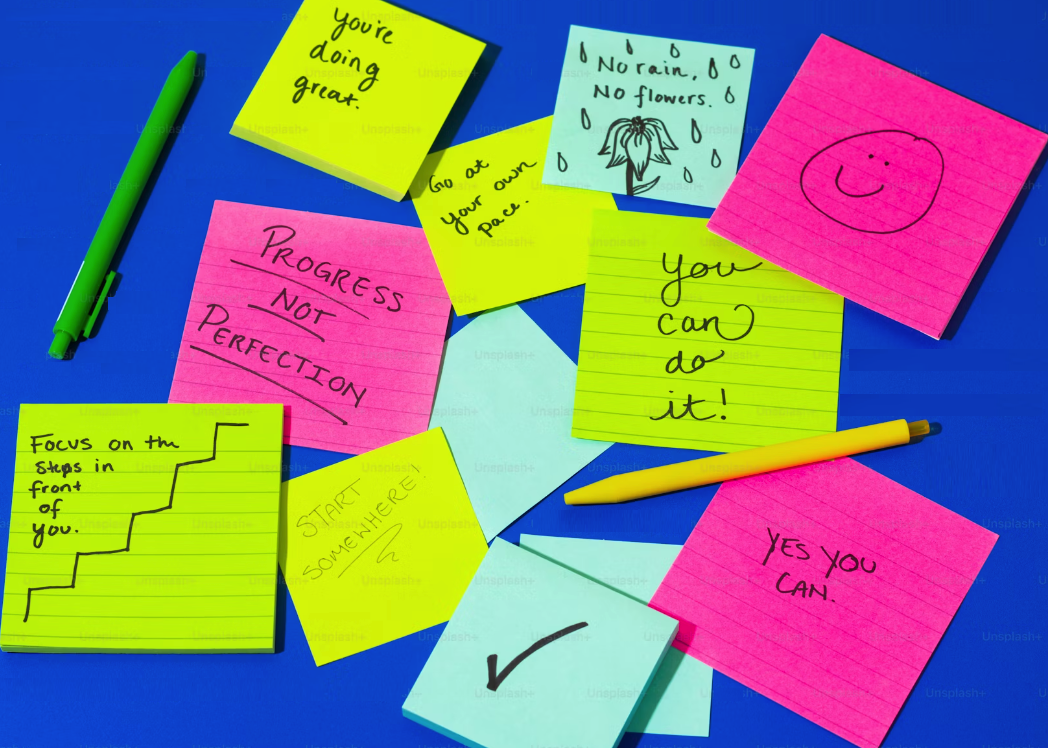 you're
doing
great.
No rain,
No flowers.
Go at
your own
pace.
PROGRESS
NOT
PERFECTION
you
can
do
it!
Focus on the
steps in
front
of
you.
START
SOMEWHERE!
YES YOU
CAN.
Unsplash+